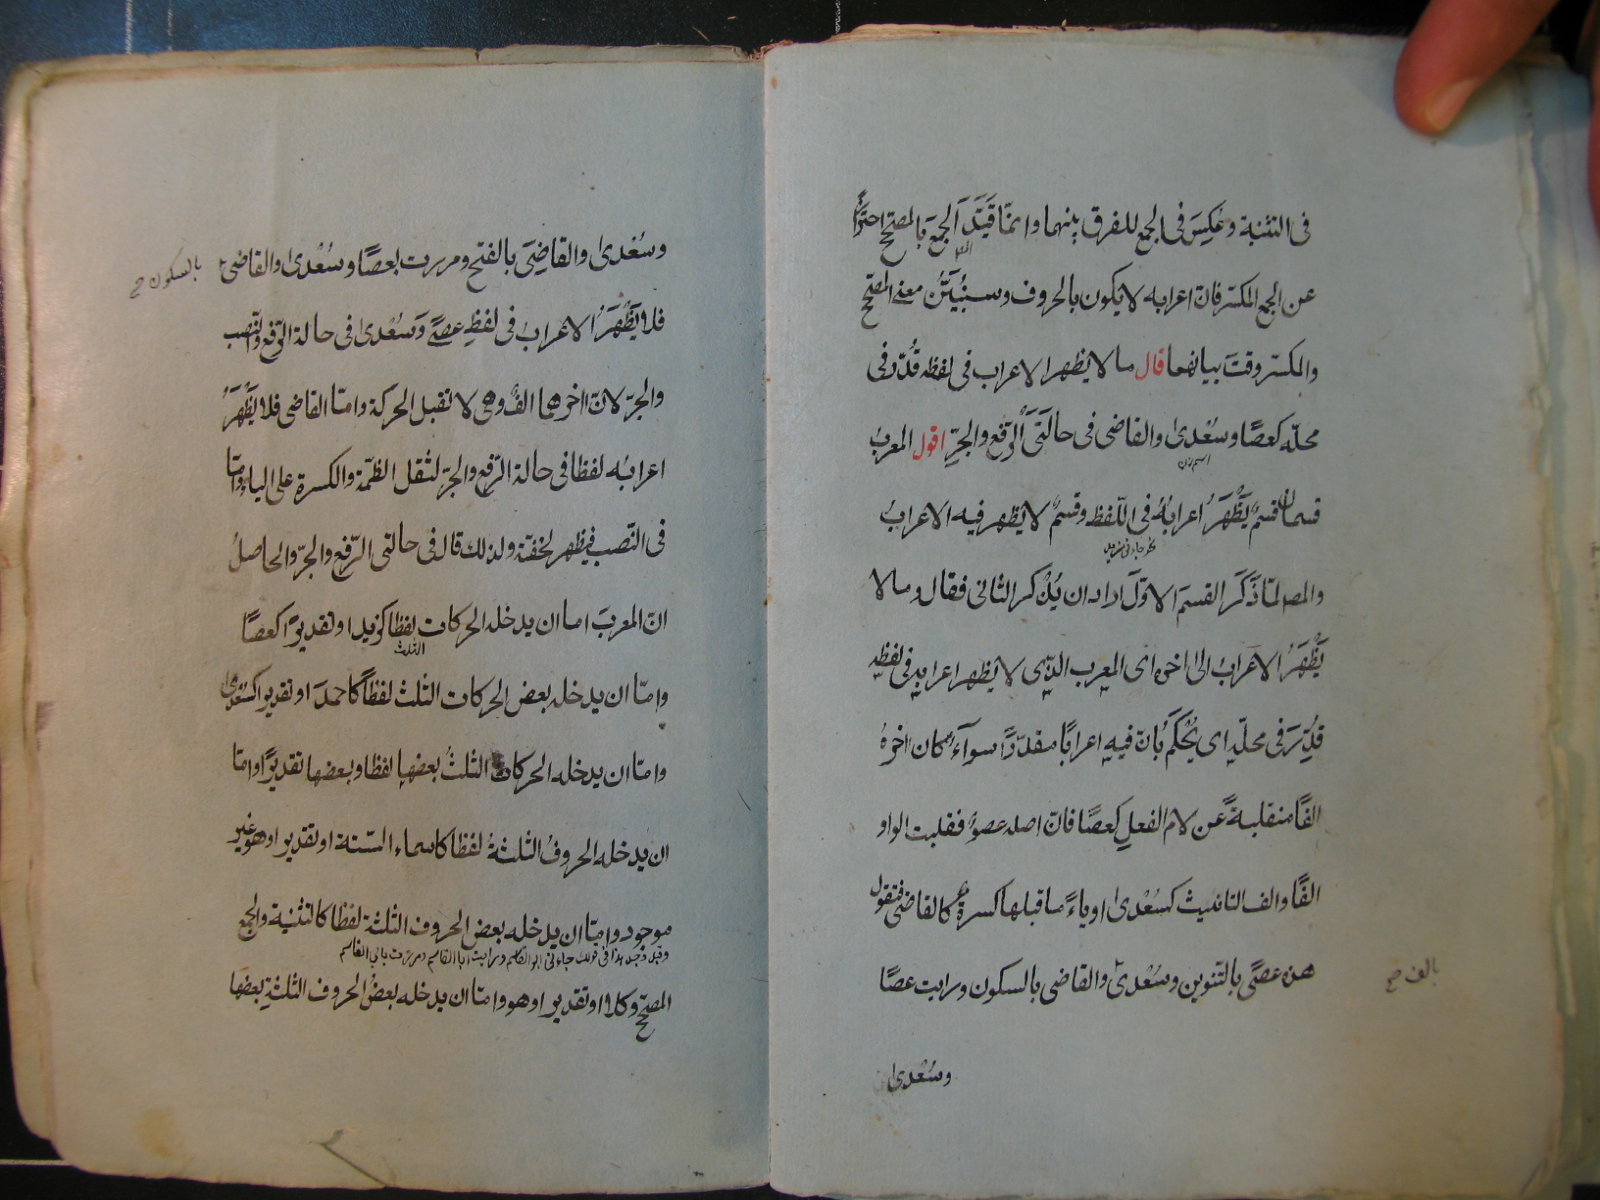 فى التثنية وعُكِسَ فى الجمع للفرق بينهما وانمّا قَيَّدَ الجمعَ بالمصحّح احترازًا
عن الجمع المكسّر فانّ اعرابه لا يكون بالحروف وسنُبيّنُ معنى المصحّح
والمكسّر وقتَ بيانهما قال ما لا يظهر الاعراب فى لفظه قُدّر فى
محلّه كعصًا وسُعْدىٰ والقاضى فى حالَتَىِ الرّفع والجرِّ اقول المعربُ
اسم زن
قسمان قسمٌ يَظْهَرُ اعرابُهُ فى اللّفظ وقسمٌ لا يظهر فيه الاعرابُ
نحو جاءنى زيد
والمصـ لمّا ذَكَرَ القسمَ الاوّلَ اراد ان يَذْكر الثانى فقال وما لا
يَظْهَرُ الاعرابُ الىٰ اخره اى المعرب الذّى لا يظهر اعرابه فى لفظه
قدُّرَ فى محلّه اى يُحْكَمُ بانّ فيه اعرابًا مقدّرًا سوآء كان اخرهُ
الفًا منقلبةً عن لام الفعلِ كعصًا فانّ اصله عصوٌ فقلبت الواو
الفًا والف التانيث كسُعْدىٰ او ياءً ما قبلها كسرة كالقاضى فتقول
هذه عصًى بالتّنوين وسُعْدىٰ والقاضى بالسكون ورايت عصًا
بالف صح
وسُعْدىٰ
وسُعْدىٰ والقاضِىَ بالفتح ومررت بعصًا وسُعْدىٰ والقاضى
بالسكون صح
فلا يَظْهَرُ الاعرابُ فى لفظِ عصًى وَسُعْدىٰ فى حالة الرّفع والنّصب
والجرّ لانّ اخرهما الفٌ وهى لا تقبل الحركة وامّا القاضى فلا يَظْهَرُ
اعرابُه لفظا فى حالة الرّفع والجرّ لثقل الضّمّة والكسرة على الياء وامّا
فى النّصب فيظهر لخفّته ولذلك قال فى حالتى الرّفع والجرّ والحاصلُ
انّ المعربَ اما ان يدخله الحركات لفظا كزيد او تقديرًا كعصًا
الثلث
وامّا ان يدخله بعض الحركات الثّلث لفظًا كاحمدَ او تقديرا كسُعْدىٰ
وامّا ان يدخله الحركات الثّلثُ بعضها لفظا وبعضها تقديرًا وامّا
ان يدخله الحروفُ الثّلثةُ لفظا كاسماء السّتة او تقديرا وهو غير
موجود وامّا ان يدخله بعض الحروف الثّلثة لفظا كالتثنية والجمع
جاءنى ابو القاسم ورايت ابا القاسم ومررت بابى القاسم
المصحّح وكلا او تقديرا وهو وامّا ان يدخله بعضُ الحروف الثّلثةِ بعضها